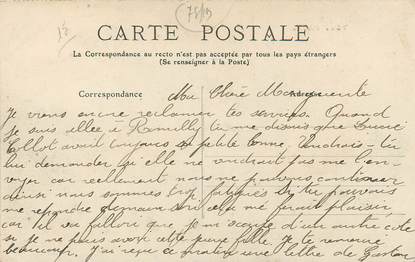 (75/19)
CARTE POSTALE
La Correspondance au recto n'est pas acceptée par tous les pays étrangers
(Se renseigner à la Poste)
Correspondance
Ma Chère Marguerite
je viens encore reclamer tes services. Quand
je suis allée à Romilly tu me disais que Lucie
Collot avait toujours sa petite bonne, voudrais-tu
lui demander si elle ne voudrait pas me l'en-
voyer car reellement nous ne pouvons continuer
ainsi nous sommes trop fatigués si tu pouvais
me repondre demain soir cela me ferait plaisir
car il va falloir que je m'occupe d'un autre côté
si je ne puis avoir cette jeune fille. Je te remercie
beaucoup. J'ai reçu ce matin une lettre de Gaston